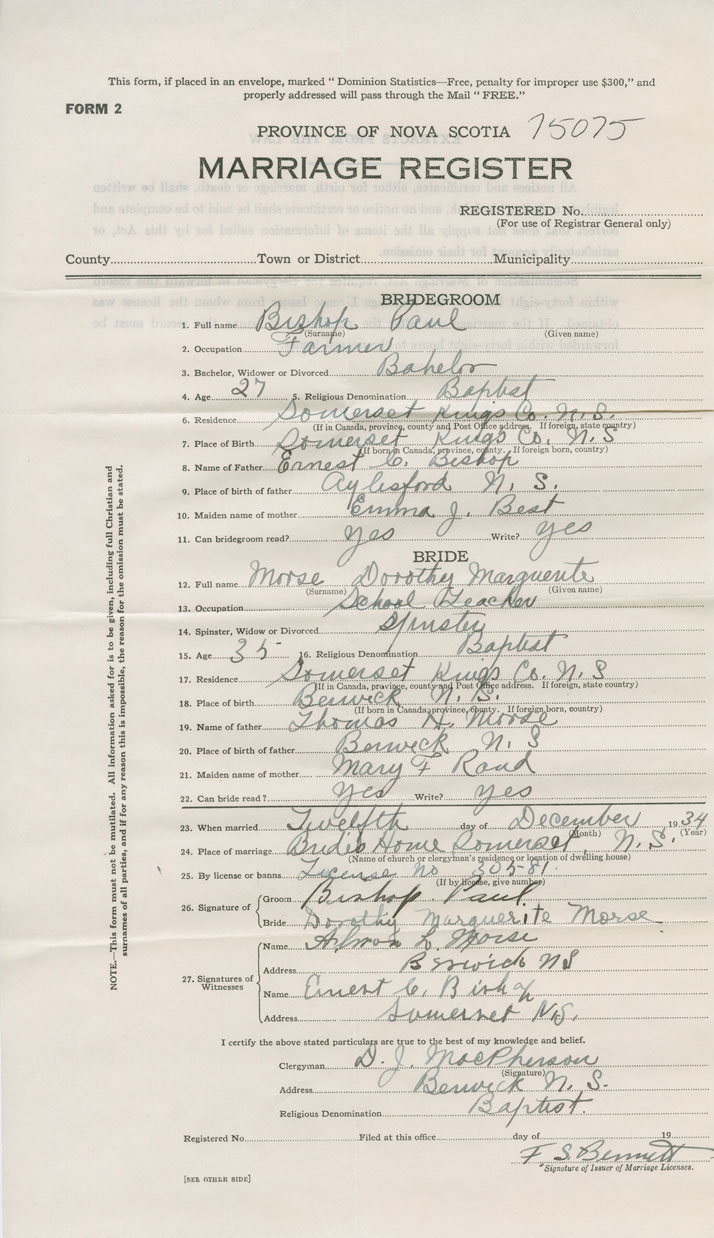 This form, if placed in an envelope, marked “ Dominion Statistics—Free, penalty for improper use $300,” and
properly addressed will pass through the Mail “ FREE.”
FORM 2
PROVINCE OF NOVA SCOTIA 75075
MARRIAGE REGISTER
REGISTERED No.
(For use of Registrar General only)
County Town or District Municipality
BRIDEGROOM
1. Full name Bishop Paul
(Surname) (Given name)
2. Occupation Farmer
3. Bachelor, Widower or Divorced Bahelor
4. Age 27 5. Religious Denomination Baptist
6. Residence Somerset Kings Co. N.S.
(If in Canada, province, county and Post Office address. If foreign, state country)
7. Place of Birth Somerset Kings Co. N.S
(If born in Canada, province, county. If foreign born, country)
8. Name of Father Ernest C. Bishop
9. Place of birth of father Aylesford N. S.
10. Maiden name of mother Emma J. Best
11. Can bridegroom read? Yes Write? yes
BRIDE
12. Full name Morse Dorothy Marguerite
(Surname) (Given name)
13. Occupation School Teacher
14. Spinster, Widow or Divorced Spinster
15. Age 35 16. Religious Denomination Baptist
17. Residence Somerset Kings Co. N.S
(If in Canada, province, county and Post Office address. If foreign, state country)
18. Place of birth Berwick N. S.
(If born in Canada, province, county. If foreign born, country)
19. Name of father Thomas H. Morse
20. Place of birth of father Berwick N. S
21. Maiden name of mother Mary F Rand
22. Can bride read? Yes Write? yes
23. When married Twelfth day of December 1934
(Month) (Year)
24. Place of marriage Brides Home Somerset, N.S.
(Name of church or clergyman's residence or location of dwelling house)
25. By license or banns License No 30581.
(If by license, give number)
26. Signature of Groom Bishop Paul
Bride Dorothy Marguerite Morse
27. Signatures of Witnesses
Name L. Morse
Address Berwick NS
Name Ernest C. Bishop
Address Somerset N.S.
I certify the above stated particulars are true to the best of my knowledge and belief.
Clergyman D. J. MacPherson
(Signature)
Address Berwick N. S.
Religious Denomination Baptist.
Registered No. Filed at this office day of 19
F S. Bennett
Signature of Issuer of Marriage Licenses.
[SEE OTHER SIDE]
NOTE.—This form must not be mutilated. All information asked for is to be given, including full Christian and
surnames of all parties, and if for any reason this is impossible, the reason for the omission must be stated.